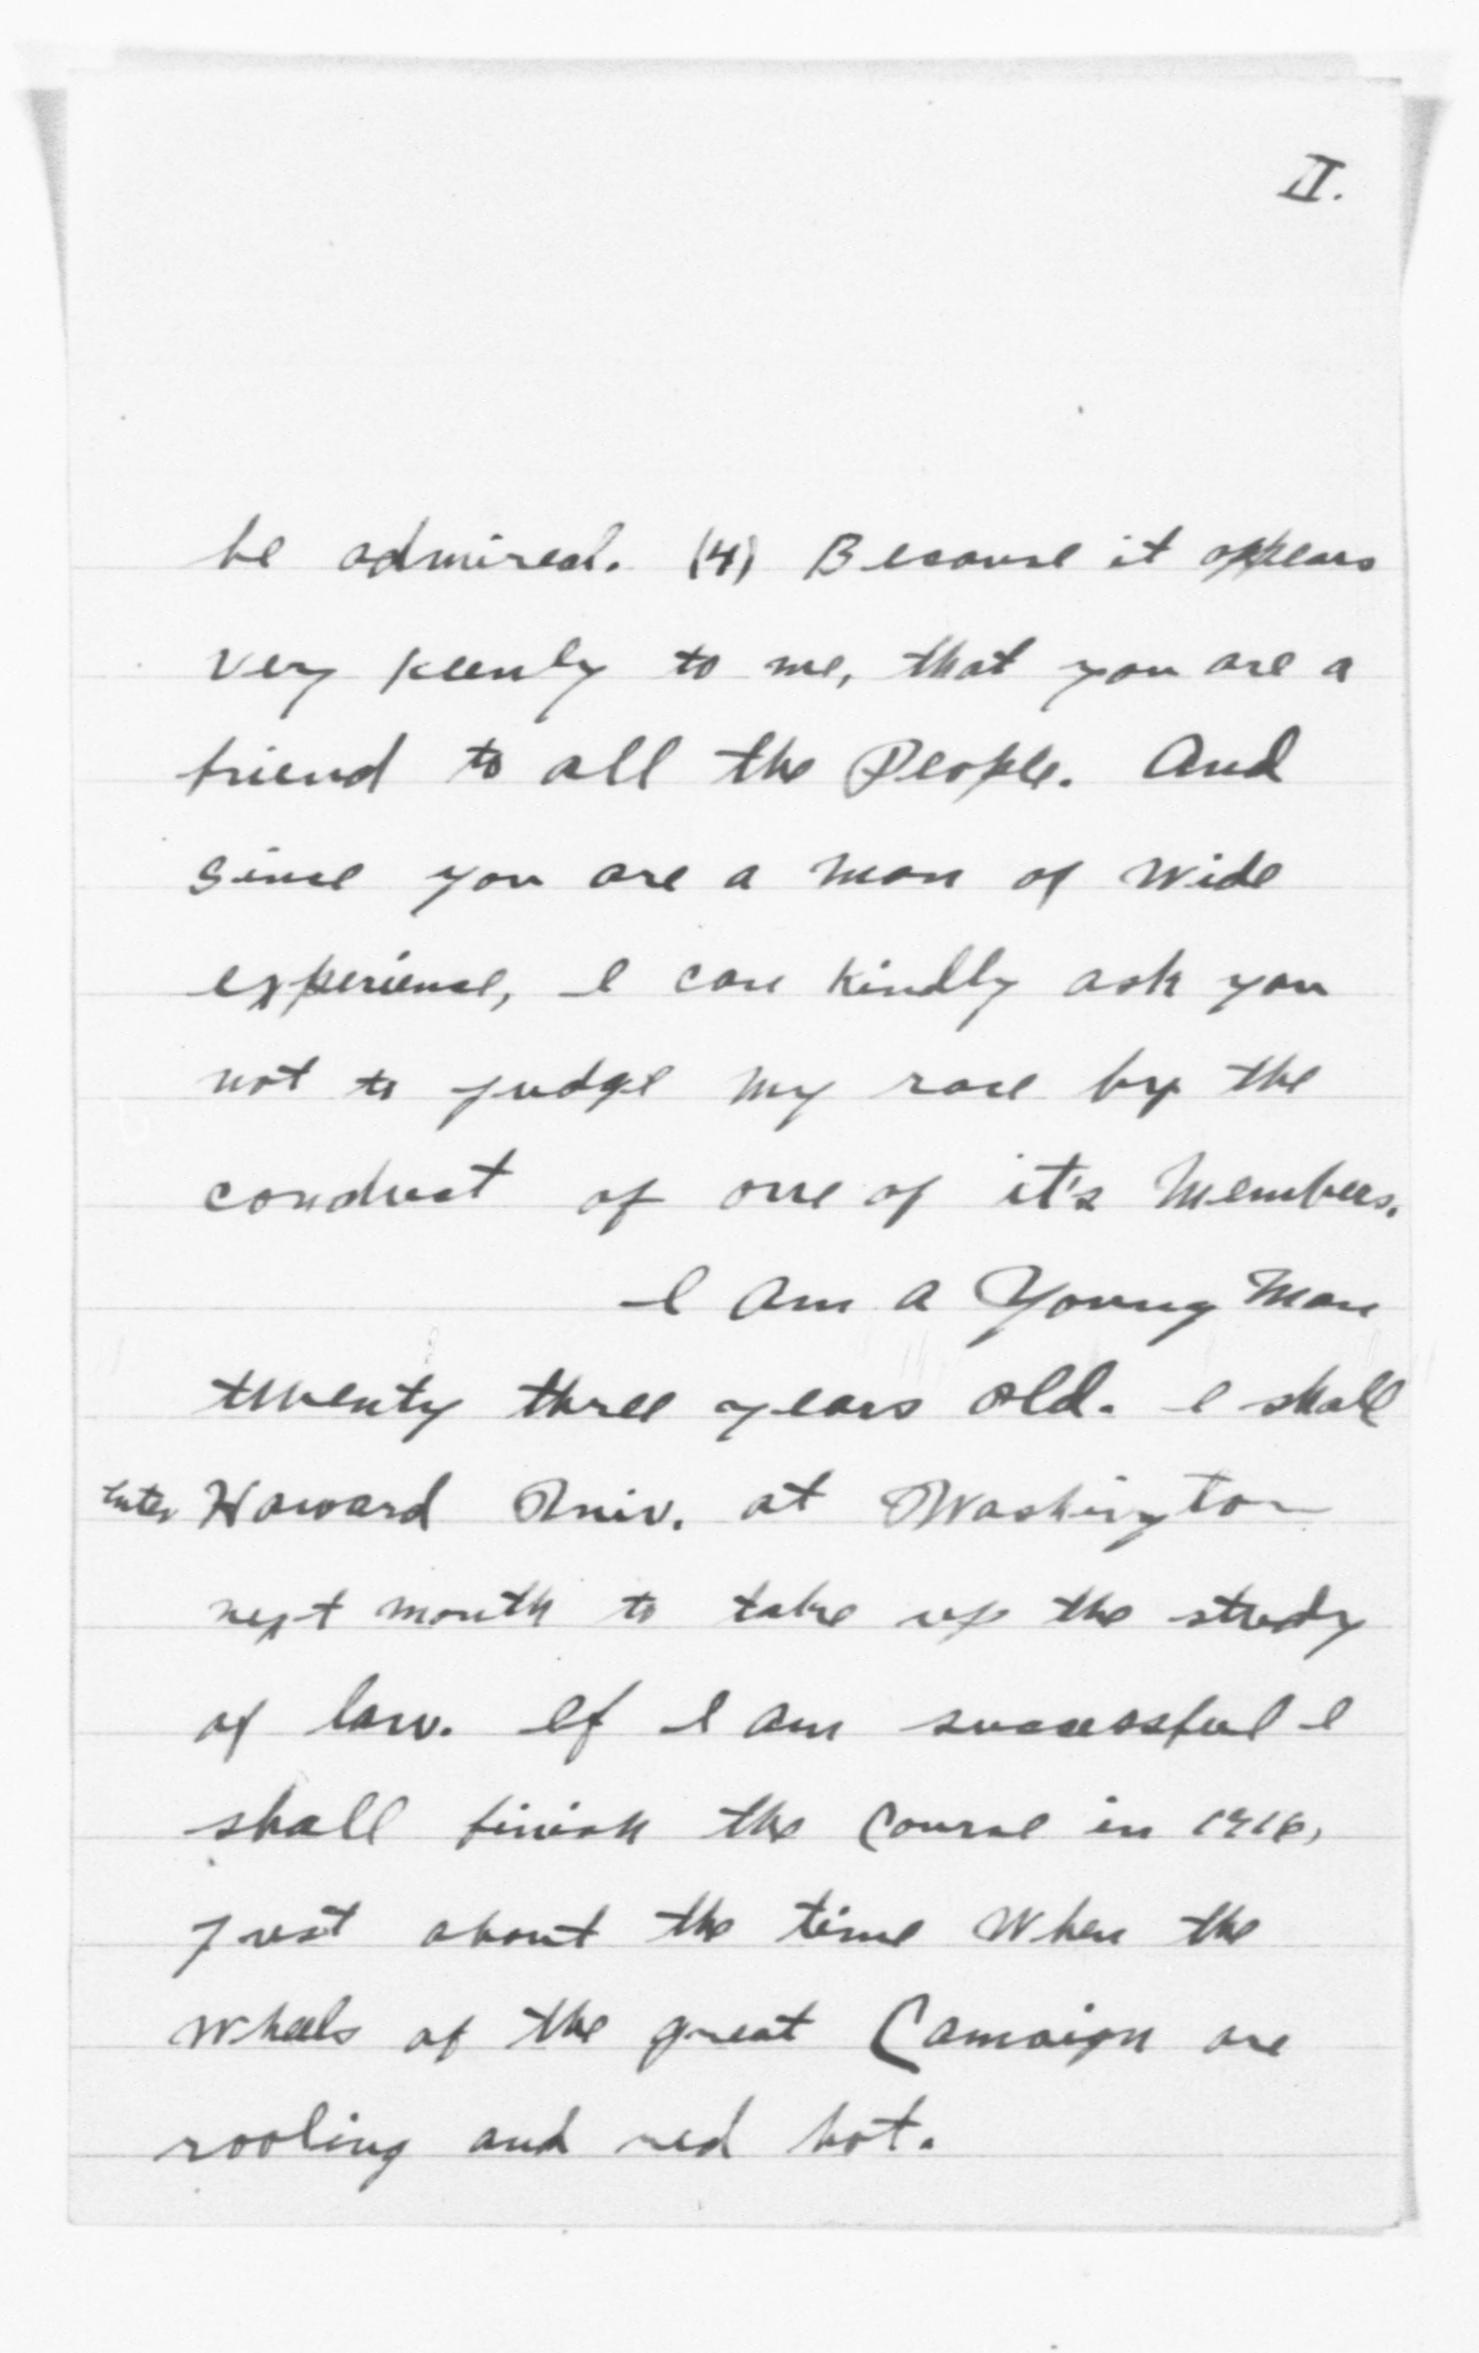 II.
be admired. (4) Because it appears
very keenly to me, that you are a
friend to all the People. And
since you are a man of wide
experience, I can kindly ask you
not to judge my race by the
conduct of one of it's Members.
I am a Young Man
twenty three years old. I shall
enter Howard Univ. at Washington
next month to take up the study
of law. If I am successful I
shall finish the Course in 1916,
Just about the time When the
Wheels of the great Camaign are
rooling and red hot.